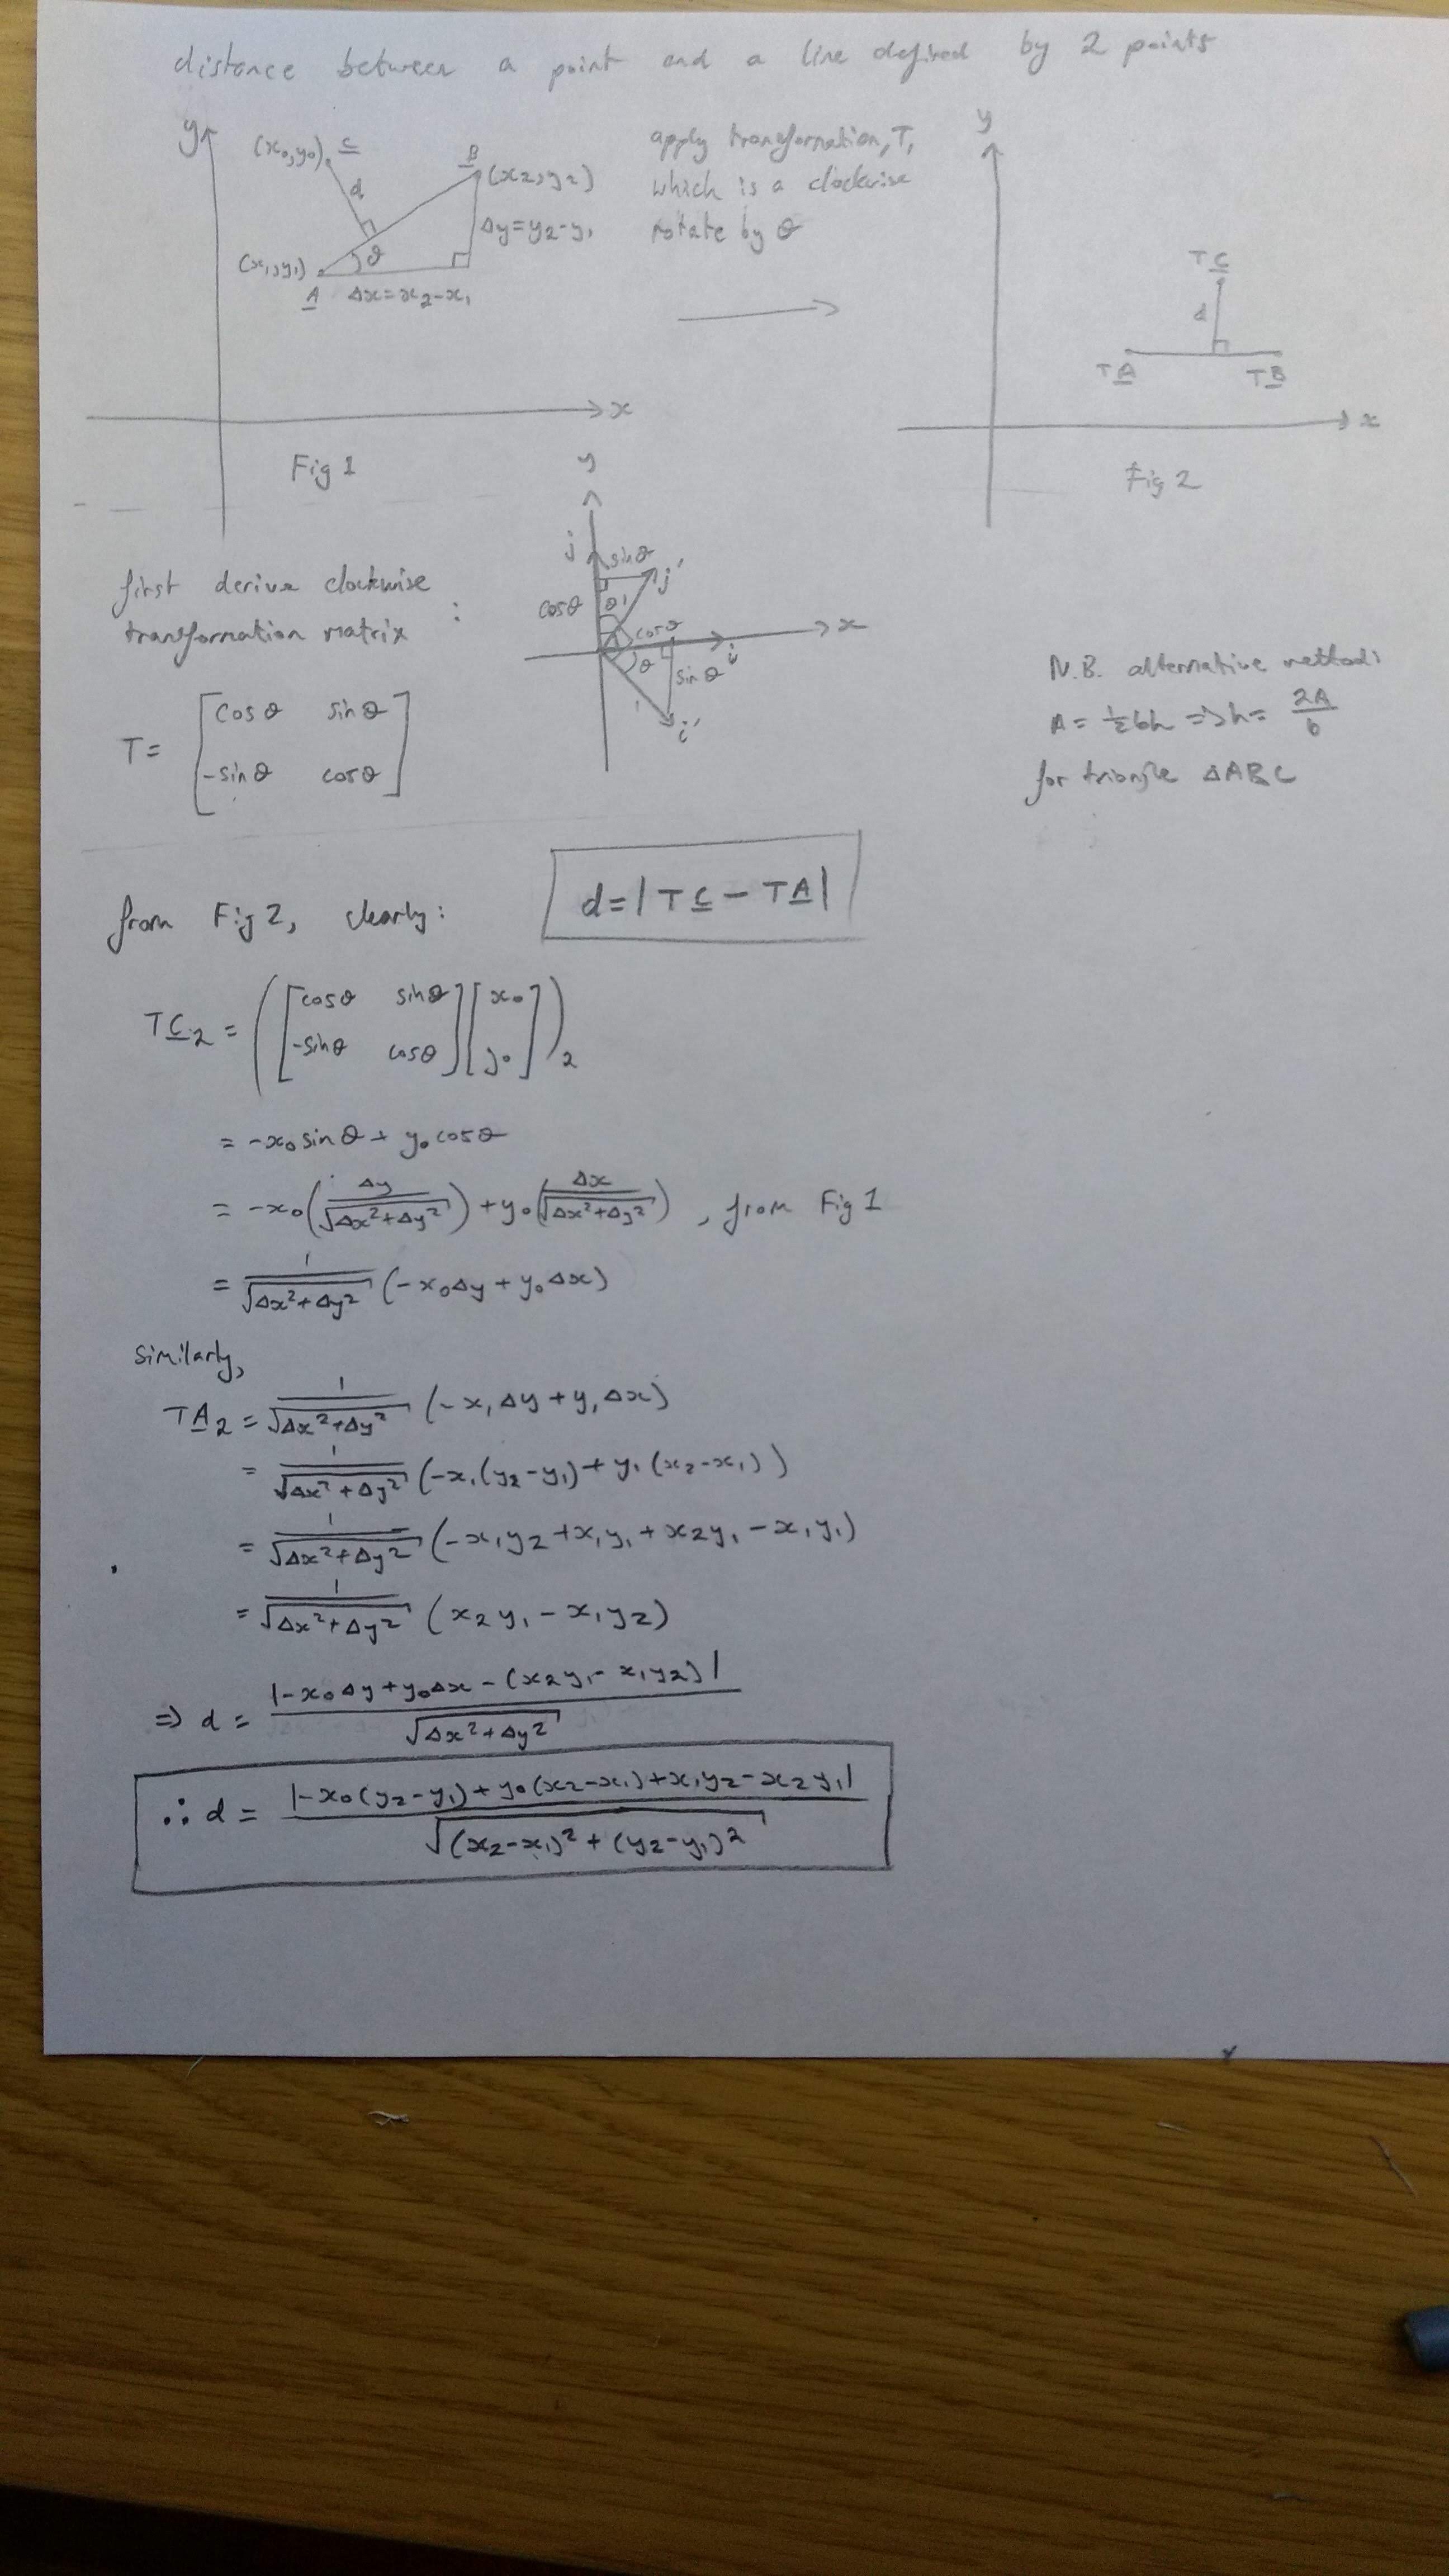 distance between a point and a line defined by 2 points
y
(x₀,y₀) C
d
B (x₂,y₂)
Δy=y₂-y₁
θ
(x₁,y₁)
A Δx=x₂-x₁
x
Fig 1
apply transformation, T,
which is a clockwise
rotate by θ
y
TC
d
TA TB
x
Fig 2
first derive clockwise
transformation matrix :
T= [cosθ sinθ
-sinθ cosθ]
y
j sinθ j'
cosθ θ 1
cosθ x
θ i
sinθ
1 i'
N.B. alternative method:
A = ½bh => h = 2A/b
for triangle ΔABC
from Fig 2, clearly: d=|TC - TA|
TC₂ = ([cosθ sinθ; -sinθ cosθ][x₀; y₀])₂
= -x₀sinθ + y₀cosθ
= -x₀(Δy/√(Δx²+Δy²)) + y₀(Δx/√(Δx²+Δy²)), from Fig 1
= 1/√(Δx²+Δy²) (-x₀Δy + y₀Δx)
similarly,
TA₂ = 1/√(Δx²+Δy²) (-x₁Δy + y₁Δx)
= 1/√(Δx²+Δy²) (-x₁(y₂-y₁) + y₁(x₂-x₁))
= 1/√(Δx²+Δy²) (-x₁y₂ + x₁y₁ + x₂y₁ - x₁y₁)
= 1/√(Δx²+Δy²) (x₂y₁ - x₁y₂)
=> d = |-x₀Δy + y₀Δx - (x₂y₁ - x₁y₂)| / √(Δx²+Δy²)
∴ d = |-x₀(y₂-y₁) + y₀(x₂-x₁) + x₁y₂ - x₂y₁| / √((x₂-x₁)² + (y₂-y₁)²)